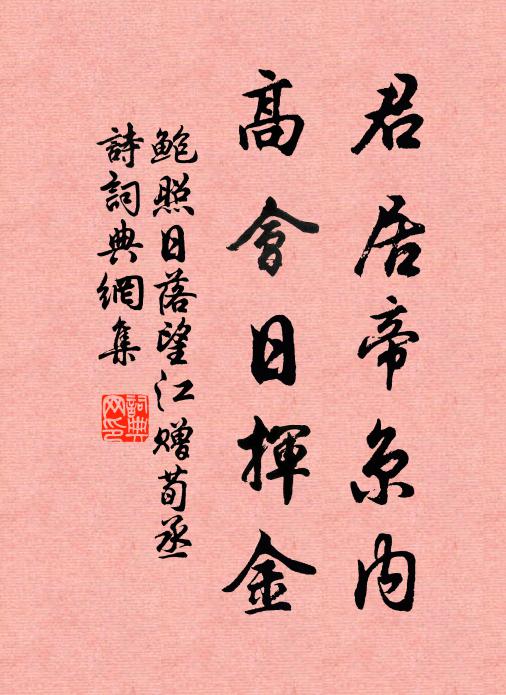 君居帝京内
高會日揮金
鲍照日落望江贈荀丞
詩詞典網集
詞典
网印